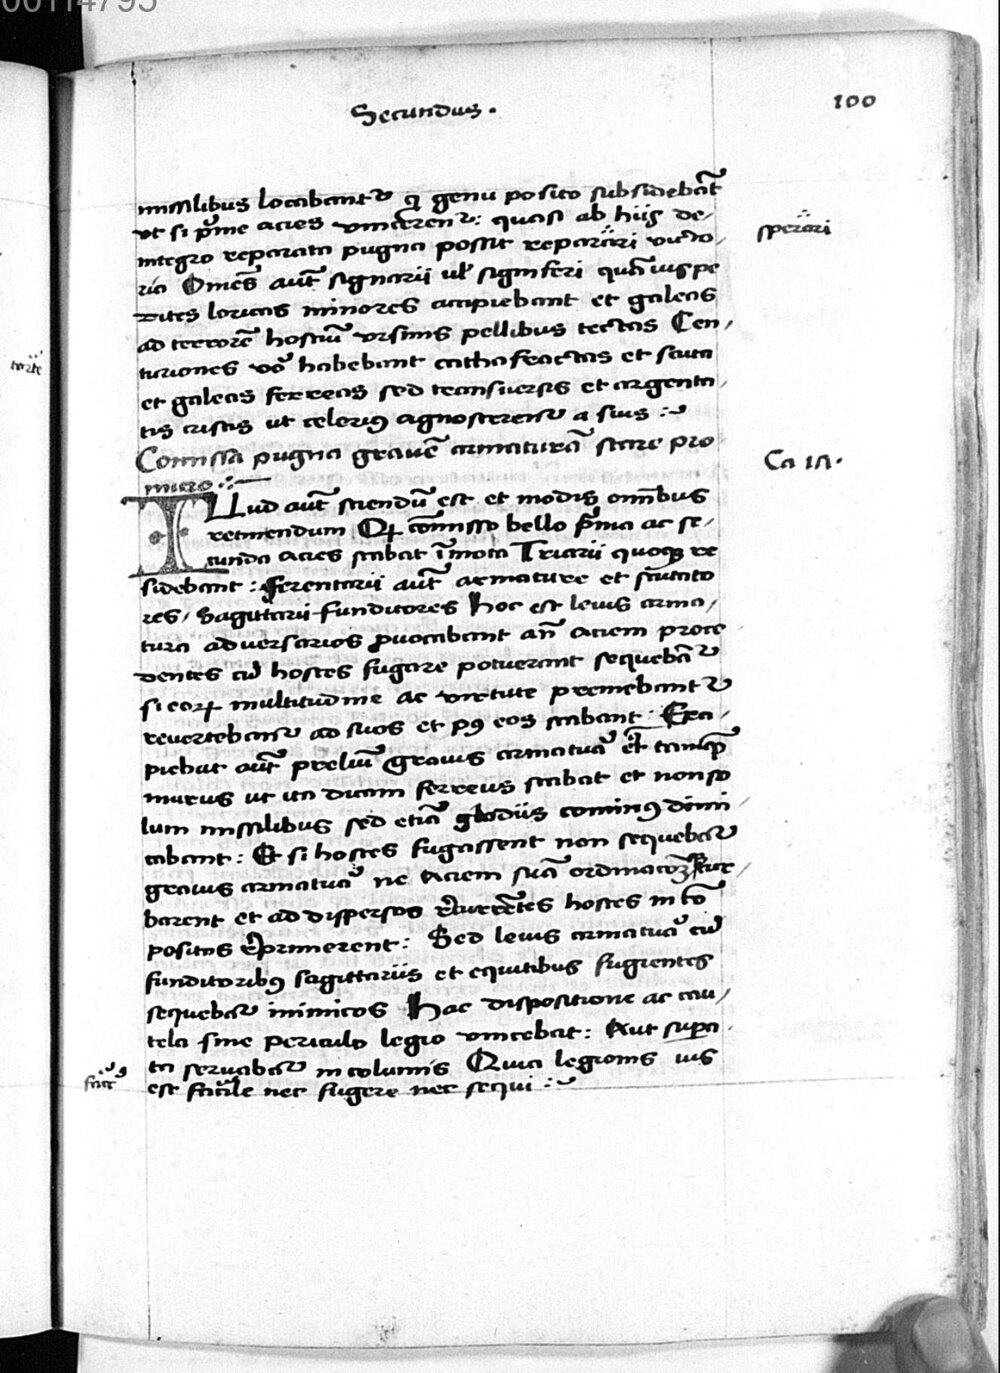 00114795
Secundus.
100
missilibus locabant᷑ q̓ genu posito subsidebāt
ut si p̓me acies vincerent᷑: quasi ab hijs de-
integro reparata pugna possit reparari victo/
ria Om̄es aut̄ signarii ul̓ signiferi quāuis pe
dites loricas minores accipiebant et galeas
ad terrorē hostiū ursinis pellibus tectas Cen/
turiones vō habebant cathafractas et scuta
et galeas ferreas sed transversis et argenta/
tis cristis ut celerius agnoscerent᷑ a suis :~
sperari
Comissa pugna gravē armaturā stare pro
muro :~
Ca 17.
ILlud aut̄ sciendū est et modis omnibus
retinendum Qꝫ cōmisso bello p̓ma ac se/
cunda acies stabat īmota Triarii quoqꝫ re
sidebant: ferentarii aut̄ armature et scutato
res/ Sagittarii funditores hoc est levis arma/
tura adversarios ꝓvocabant an̄ aciem proce
dentes cū hostes fugare potuerant sequebāt᷑
si eoꝝ multitudine ac virtute premebant᷑
revertebant᷑ ad suos et pꝰ eos stabant: Exci/
piebat aut̄ preliū gravis armatura et tamqꝫ
murus ut ita dicam ferreus stabat et non so
lum missilibus sed etiā gladiis cominꝰ dimi/
cabant: Et si hostes fugassent non sequebat᷑
gravis armatura ne Aciem suā ordinacōꝫ tur/
barent et ad dispersos rēvertētes hostes incō
positos opprimerent: Sed levis armatura cū
funditoribꝰ sagittariis et equitibus fugientes
sequebat᷑ inimicos Hac dispositione ac cau/
tela sine periculo legio vincebat: Aut supa/
ta servabat᷑ incolumis Quia legionis ius
est facile nec fugere nec sequi :~